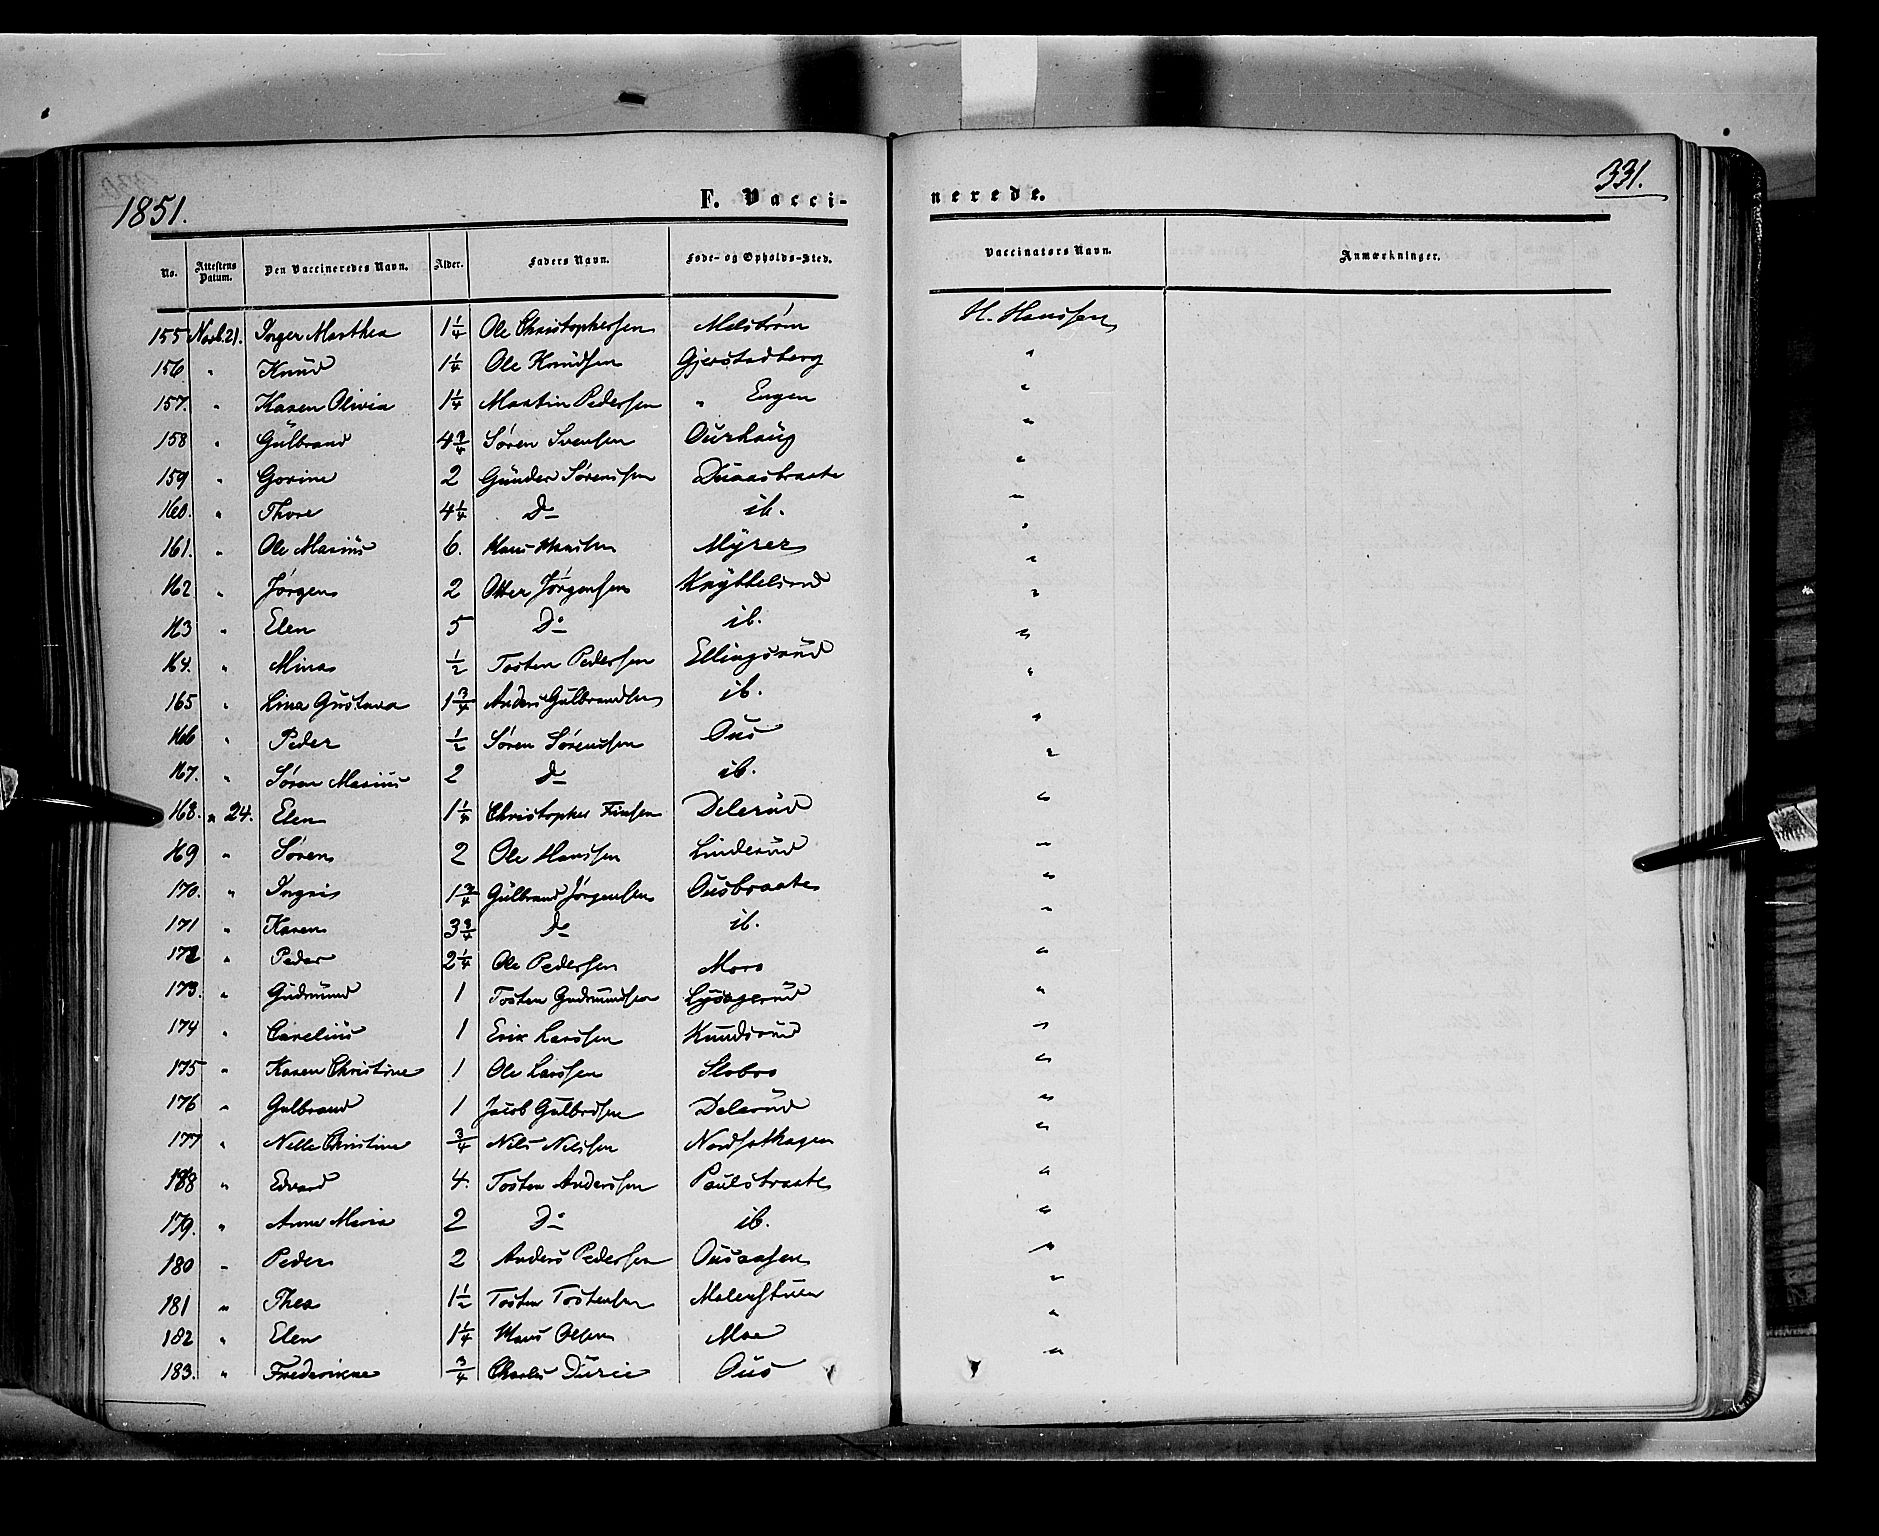 1851. F. Vacci- nerede. 331.
No. Attestens Datum. Den Vaccineredes Navn. Alder. Faders Navn. Føde- og Opholds-Sted. Vaccinators Navn. Anmærkninger.
155 Novb. 21. Inger Marthea 1 1/4 Ole Christophersen Melstrøm H. Hanssen
156 " Knud 1 1/4 Ole Knudsen Gjerstadberg "
157. " Karen Olivia 1 1/4 Martin Pedersen " Engen "
158 " Gulbrand 4 3/4 Søren Svensen Ourhaug "
159 " Gorine 2 Gunder Sørenssen "
160. " Thore 4 1/4 Do ib. "
161. " Ole Marius 6. Myrer "
162 " Jørgen 2 Otter Jørgensen Knyttelsrud "
163 " Elen 5 Do ib. "
164. " Mina 1/2 Tosten Pedersen Ellingsrud "
165 " Lina Gustava 1 3/4 Anders Gulbrandsen ib. "
166 " Peder 1/2 Søren Sørenssen Ous "
167. " Søren Marius 2 Do ib. "
168. " 24. Elen 1 1/4 Christopher Finsen Delerud "
169 " Søren 2 Ole Hanssen Linderud "
170. " Ingri 1 3/4 Gulbrand Jørgensen Ousbraate "
171 " Karen 3 3/4 Do ib. "
172 " Peder 2 1/4 Ole Pedersen Moro "
173. " Gudmund 1 Tosten Gudmundsen "
174 " Carelius 1 Erik Larssen Knudsrud "
175 " Karen Christine 1 Ole Larssen Slobro "
176 " Gulbrand 1 Jacob Gulbrdsen Delerud "
177 " Nelle Christine 3/4 Nils Nilssen "
178 " Edvard 4. Tosten Anderssen Paulsbraate "
179. " Anne Maria 2 Do ib. "
180 " Peder 2 Anders Pedersen Ousaasen "
181 " Thea 1 1/2 Tosten Tostensen Malerstuen "
182 " Elen 1 1/4 Hans Olsen Moe "
183. " 3/4 Charles Durie Ous "